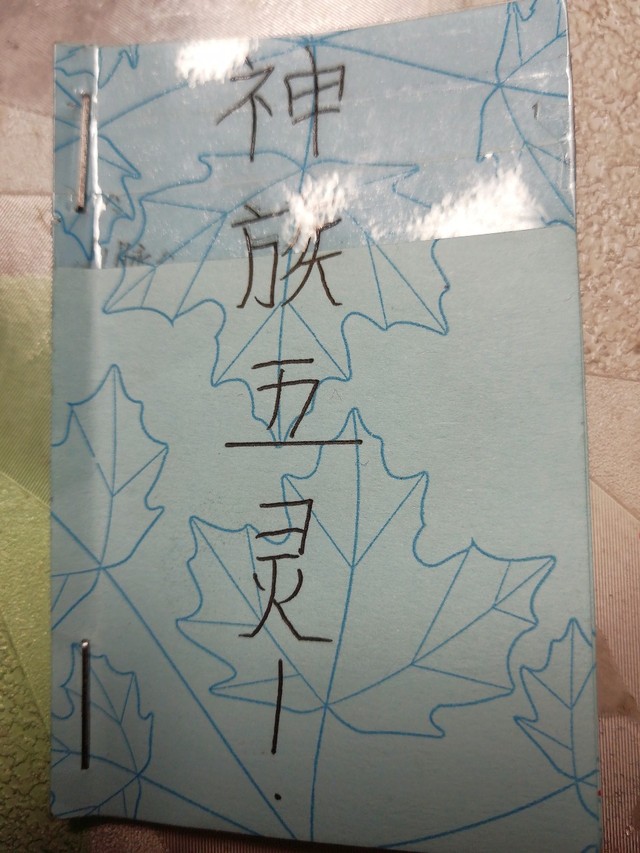 神族五灵！